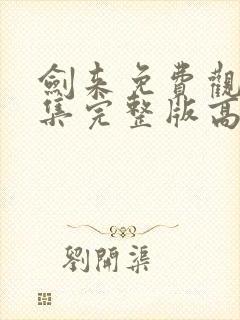 劍來免費觀
集完整版高
劉開渠